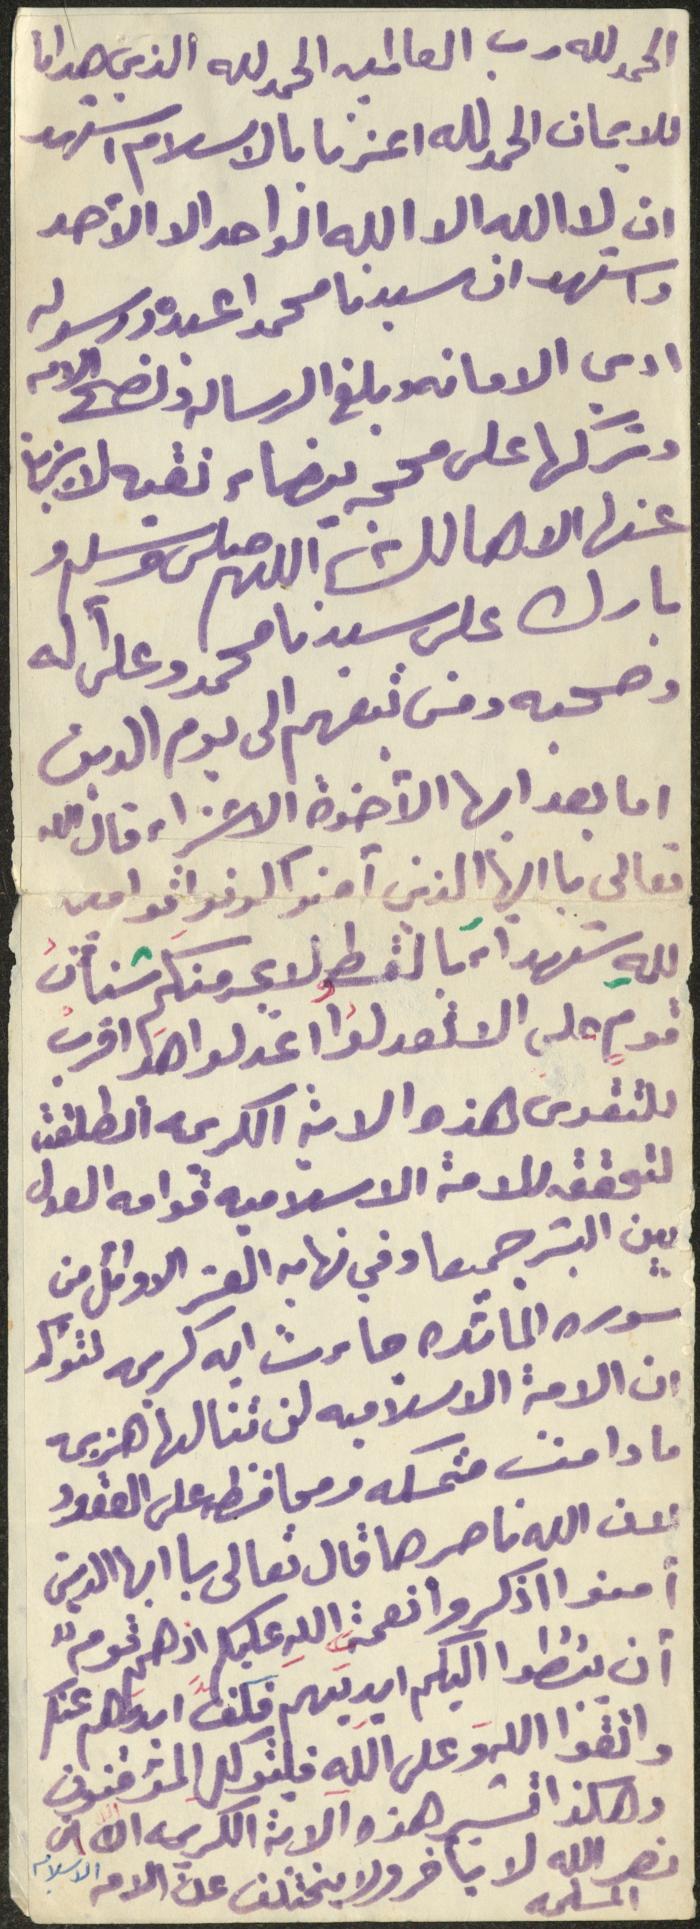 الحمد لله رب العالمين الحمد لله الذي هدانا
للايمان الحمد لله اعزنا بالاسلام اشهد
ان لا الله الا الله الواحد الا الأحد
واشهد ان سيدنا محمدا عبده ورسوله
ادى الامانه وبلغ الرساله ونصح الامه
وتركها على محجه بيضاء نقيه لا يزيغ
عنها الا هالك اللهم صلي وسلم و
بارك على سيدنا محمد وعلى آله
وصحبه ومن تبعهم الى يوم الدين
اما بعد ايها الأخوة الاعزاء قال الله
تعالى يا ايها الذين آمنوا كونوا قوامين
للهِ شهداءَ بالقسط ولا يجرمنكم شنأنُ
قومٍ على الا تعدلوُا اعدلوا هوَ اقربُ
للتقوى هذه الاية الكريمه انطلقت
لتحقق للامة الاسلاميه قوامه العدل
بين البشر جميعا وفي نهايه العشر الاوائل من
سوره المائده جاءت ايه كريمه لتؤكد
ان الامة الاسلاميه لن تنالها هزيمه
ما دامت متمسكه ومحافظه على العقود
لان الله ناصرها قال تعالى يا ايها الذين
آمنوا اذكروا نعمتَ اللهِ عليكم اذ همَّ قومٌ
أن يبسُطوا اليكم ايديَهم فكفَّ ايديَهم عنكم
واتقوا اللهَ وعلى اللهِ فليتوكلِ المؤمنون
وهكذا تشير هذه الاية الكريمه الى ان
نصر الله لا يتأخر ولا يتخلف عن الامه الاسلاميه
المسلمه